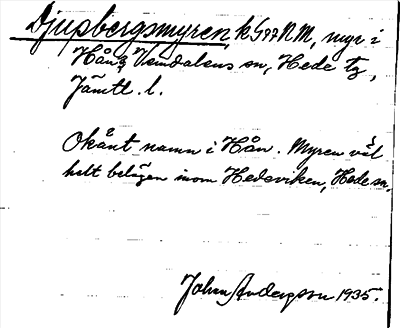 Djupbergsmyren, k G77 NM, myr i
Hån, Vemdalens sn, Hede tg,
Jämtl. l.
Okänt namn i Hån. Myren väl
helt belägen inom Hedeviken, Hede sn.
Johan Anderson 1935.